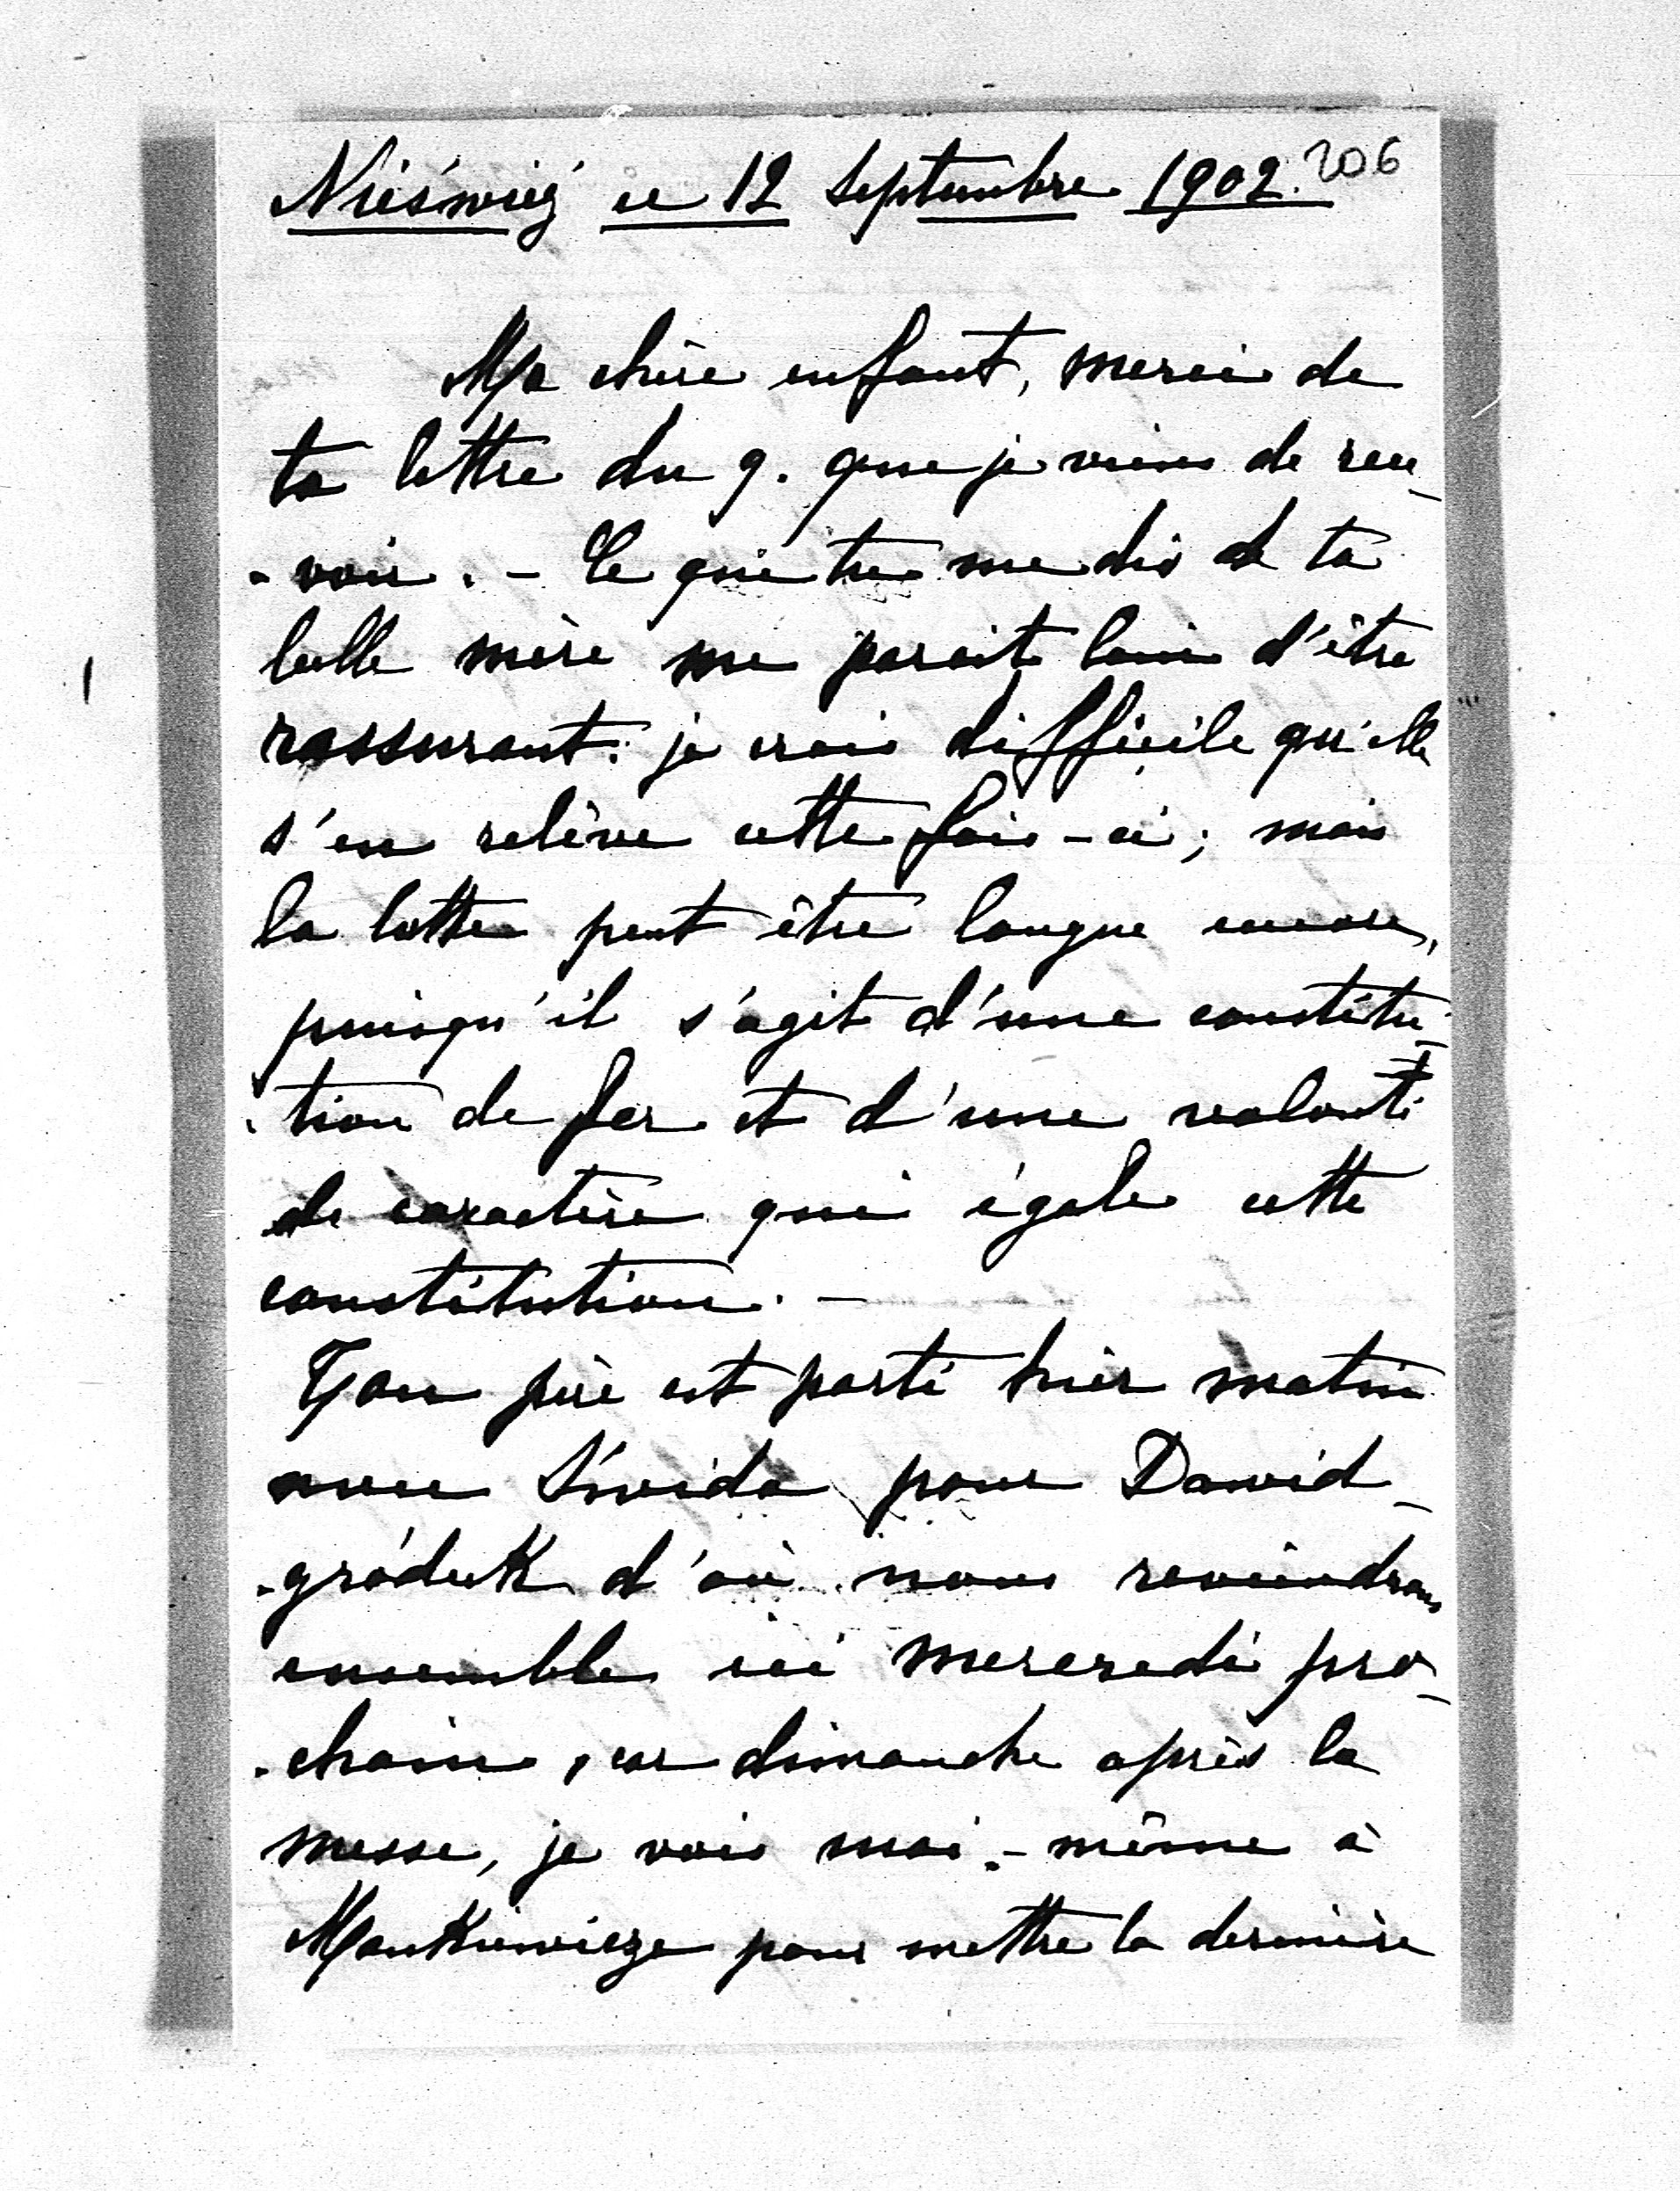 Nieśwież ce 12 Septembre 1902. 206
Ma chère enfant, merci de
ta lettre du 9. que je viens de rece-
-voir. - Ce que tu me dis de ta
belle mère me parait loin d'être
rassurant: je crois difficile qu'elle
s'en relève cette fois-ci; mais
la lutte peut être longue encore,
puisqu'il s'agit d'une constitu-
-tion de fer et d'une volonté
de caractère qui égale cette
constitution. -
Ton père est parti hier matin
avec Świda pour Dawid-
-gródek d'où nous reviendrons
ensemble ici mercredi pro-
-chain, car dimanche après la
messe, je vais moi-même à
Mankiewicze pour mettre la dernière